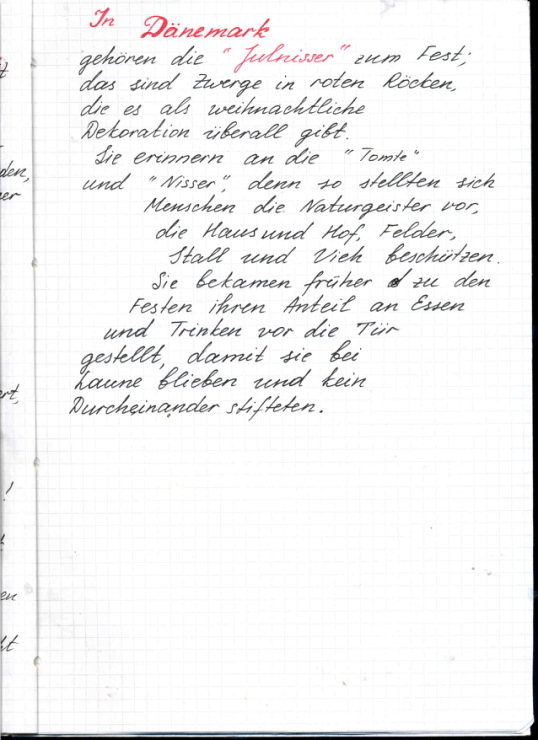 In Dänemark
gehören die "Julnisser" zum Fest;
das sind Zwerge in roten Röcken,
die es als weihnachtliche
Dekoration überall gibt.
Sie erinnern an die "Tomte"
und "Nisser", denn so stellten sich
Menschen die Naturgeister vor,
die Haus und Hof, Felder,
Stall und Vieh beschützen.
Sie bekamen früher zu den
Festen ihren Anteil an Essen
und Trinken vor die Tür
gestellt, damit sie bei
Laune blieben und kein
Durcheinander stifteten.